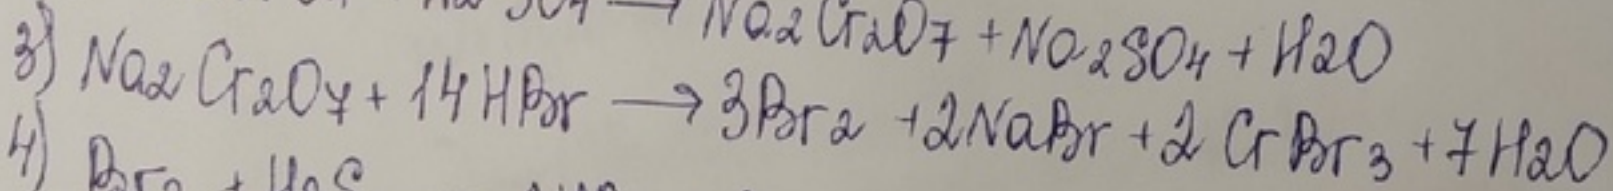 SO4 → Na2Cr2O7 + Na2SO4 + H2O
3) Na2Cr2O7 + 14HBr → 3Br2 + 2NaBr + 2CrBr3 + 7H2O
4) Br2 + H2S